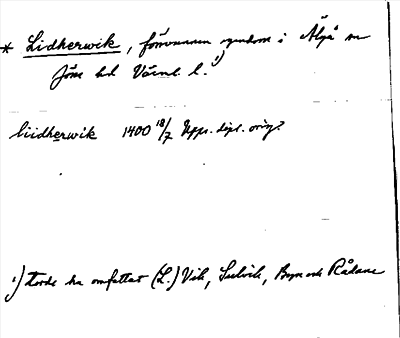 * Lidherwik, försvunnen egendom i Älgå sn
Jösse hd Värml. l.¹)
liidherwik 1400 18/7 Upps. dipl. orig.
¹) Torde ha omfattat (L.) Vik, Sulvik, Byn och Rådane